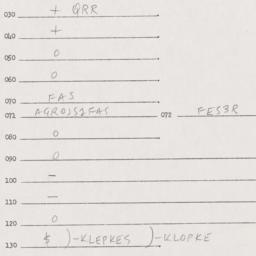 030 + QRR
040 +
050 0
060 0
070 FAS
071 AGR0151FAS 072 FES3R
080 0
090 0
100 -
110 -
120 0
130 $ )-KLEPKES )-KLOPKE